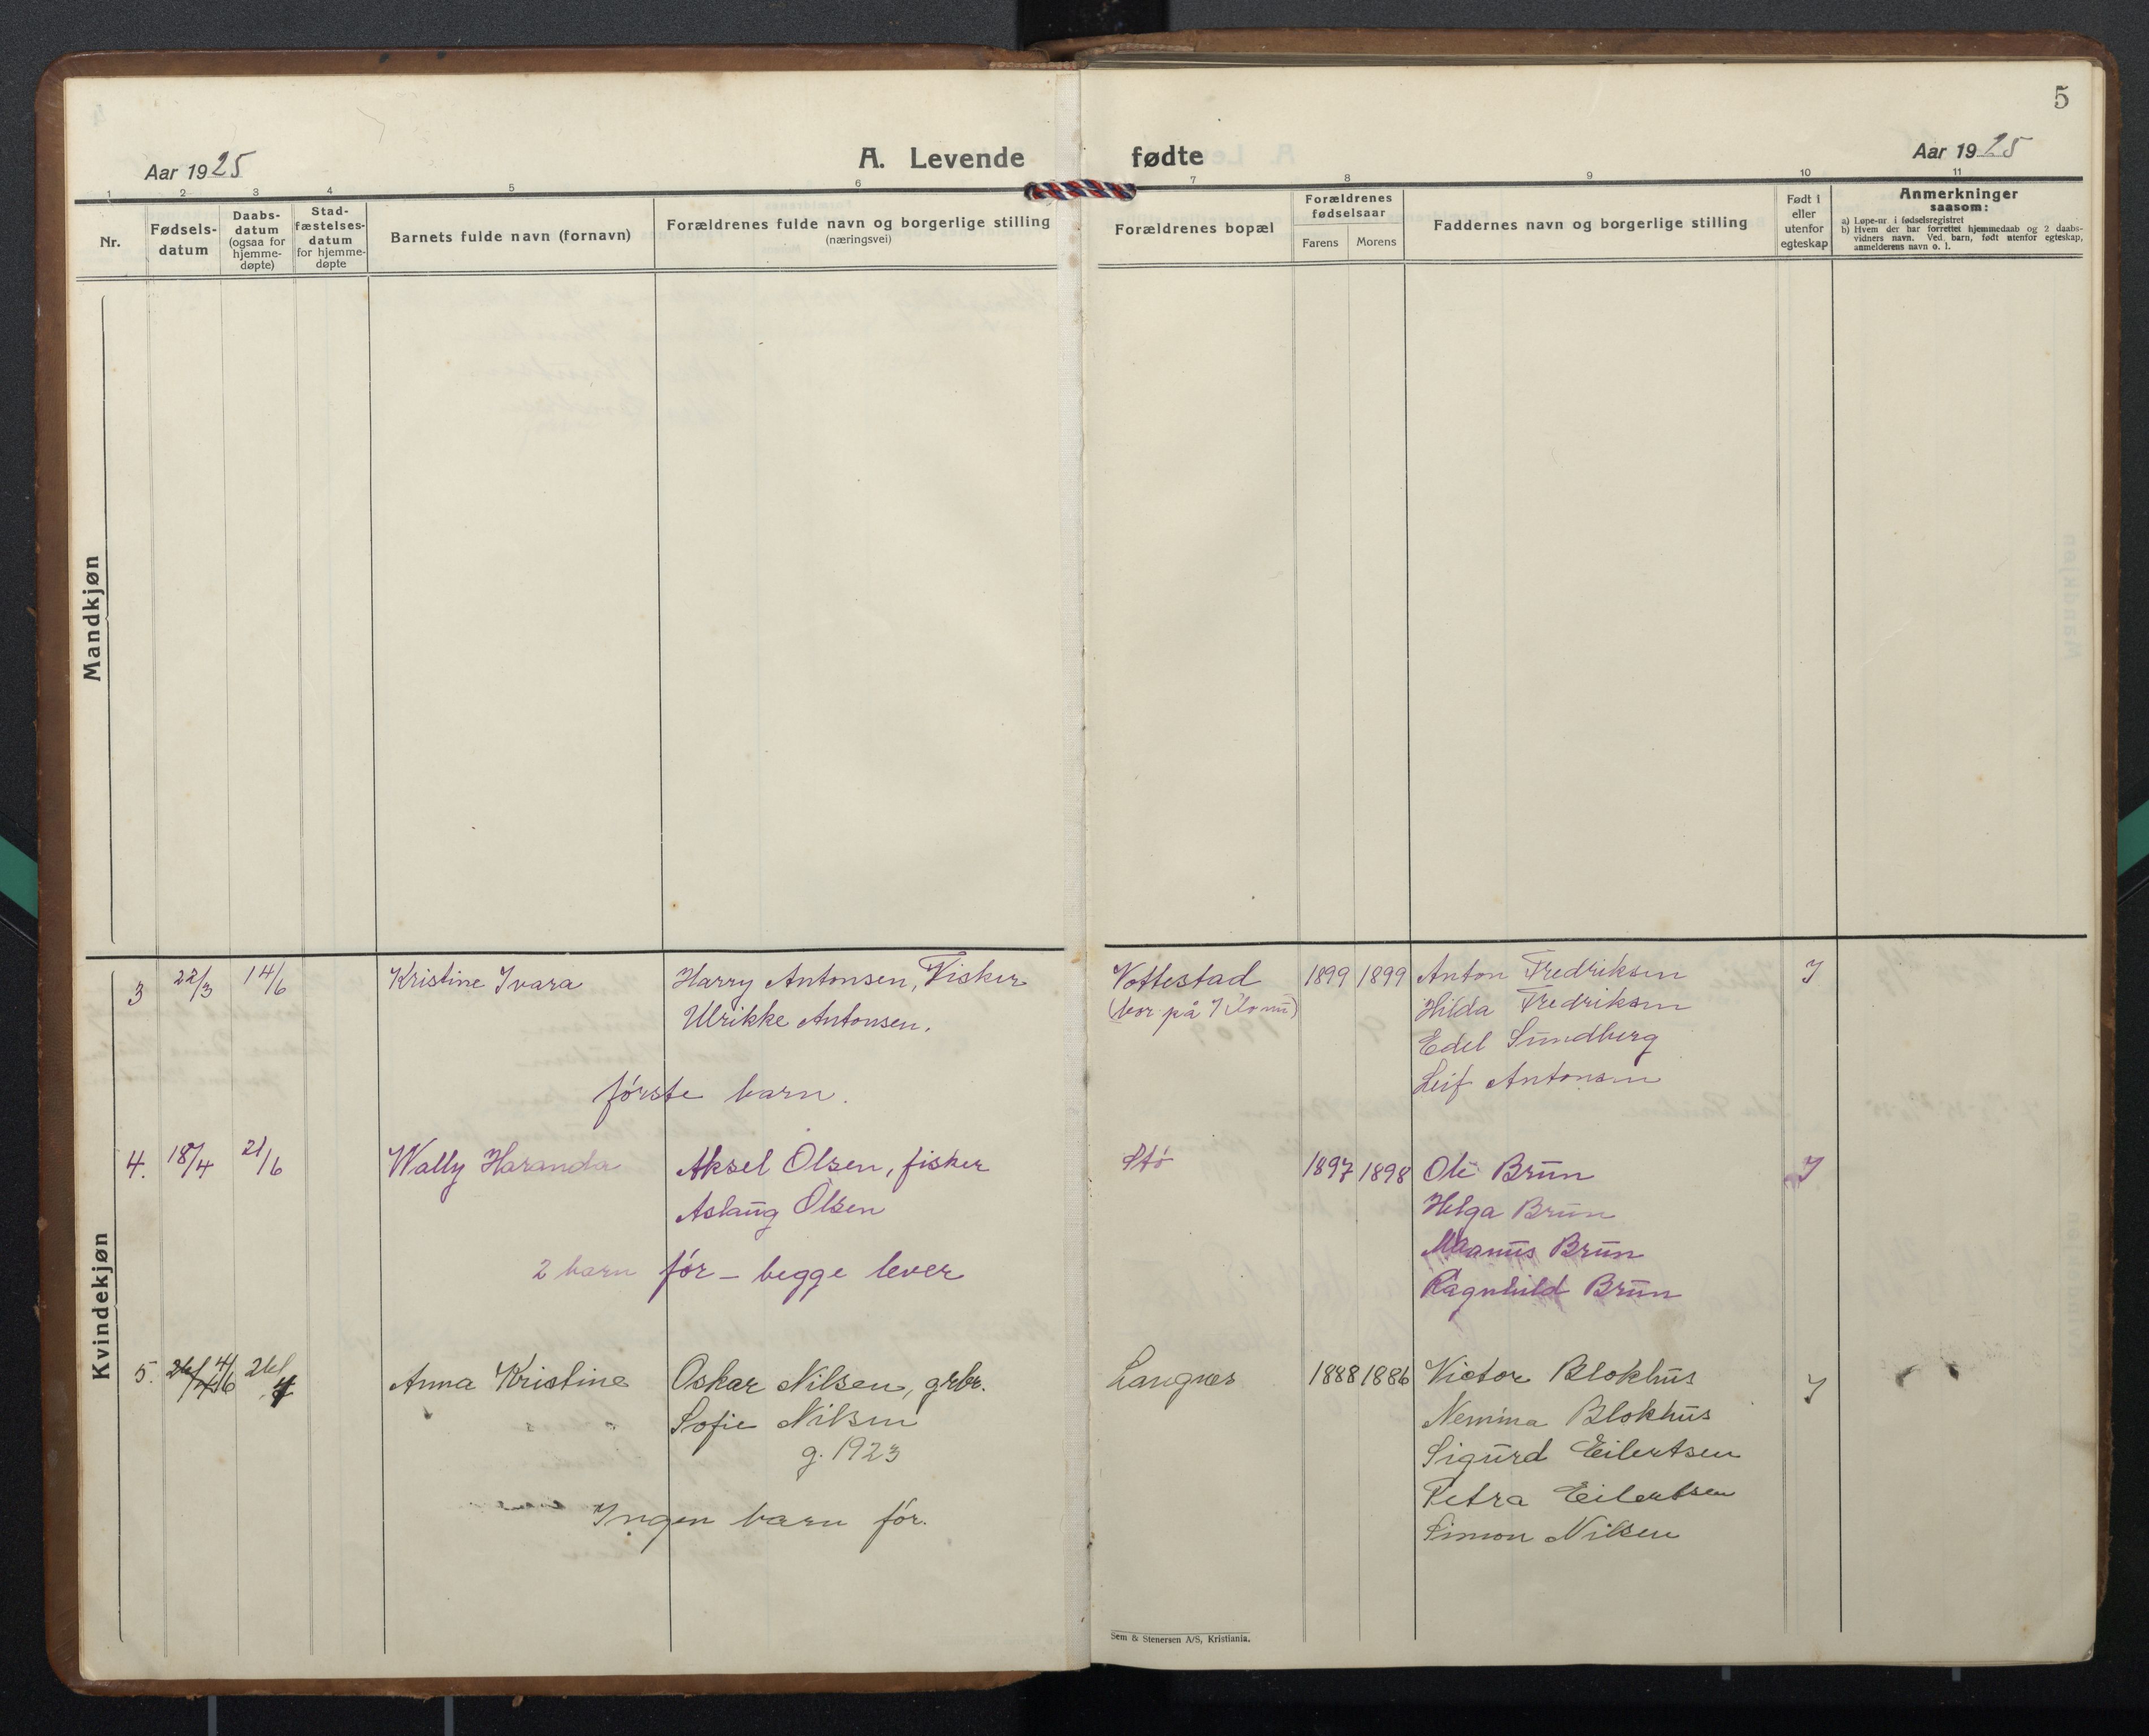 5
Aar 1925
A. Levende fødte
Aar 1925
1 2 3 4 5 6 7 8 9 10 11
Nr.
Fødsels-
datum
Daabs-
datum
(ogsaa for
hjemme-
døpte)
Stad-
fæstelses-
datum
for hjemme-
døpte
Barnets fulde navn (fornavn)
Forældrenes fulde navn og borgerlige stilling
(næringsvei)
Forældrenes bopæl
Forældrenes
fødselsaar
Farens Morens
Faddernes navn og borgerlige stilling
Født i
eller
utenfor
egteskap
Anmerkninger
saasom:
a) Løpe-nr i fødselsregistret
b) Hvem der har forrettet hjemmedaab og 2 daabs-
vidners navn. Ved barn, født utenfor egteskap,
anmelderens navn o. l.
Mandkjøn
Kvindekjøn
3 22/3 14/6 Kristine Ivara Harry Antonsen, Fisker Vottestad 1899 1899 Anton Fredriksen I
Ulrikke Antonsen. (bor på Hilda Fredriksen
Edel Sundberg
Leif Antonsen
første barn.
4. 18/4 21/6 Wally Haranda Aksel Olsen, fisker Stø 1897 1898 Ole Brun I
Aslaug Olsen Helga Brun
2 barn før – begge lever Magnus Brun
Ragnhild Brun
5. 4/6 26/7 Anna Kristine Oskar Nilsen, grbr. Langnes 1888 1886 Victor Blokhus I
Sofie Nilsen Nemina Blokhus
g. 1923 Sigurd Eilertsen
Ingen barn før. Petra Eilertsen
Simon Nilsen
Sem & Stenersen A/S, Kristiania.